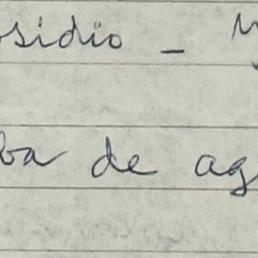 osidio –
ba de ag